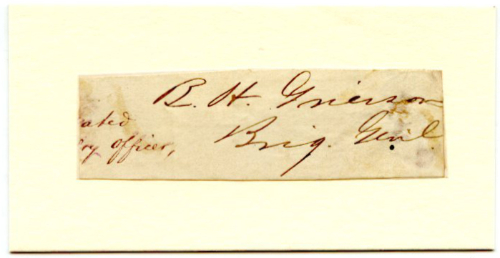 B. H. Grierson
Brig. Genl.
ated
ry officer,